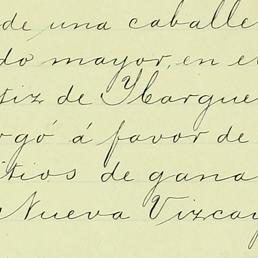 de una caballe
do mayor, en el
tiz de Ybargue
rgó á favor de
itios de gana
Nueva Vizcay